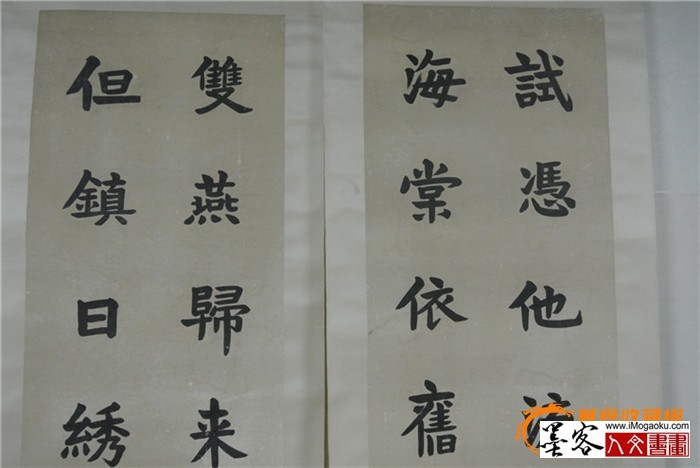 試憑他
海棠依舊
雙燕歸来
但鎮日綉
墨客人文書畫
www.iMogaoku.com